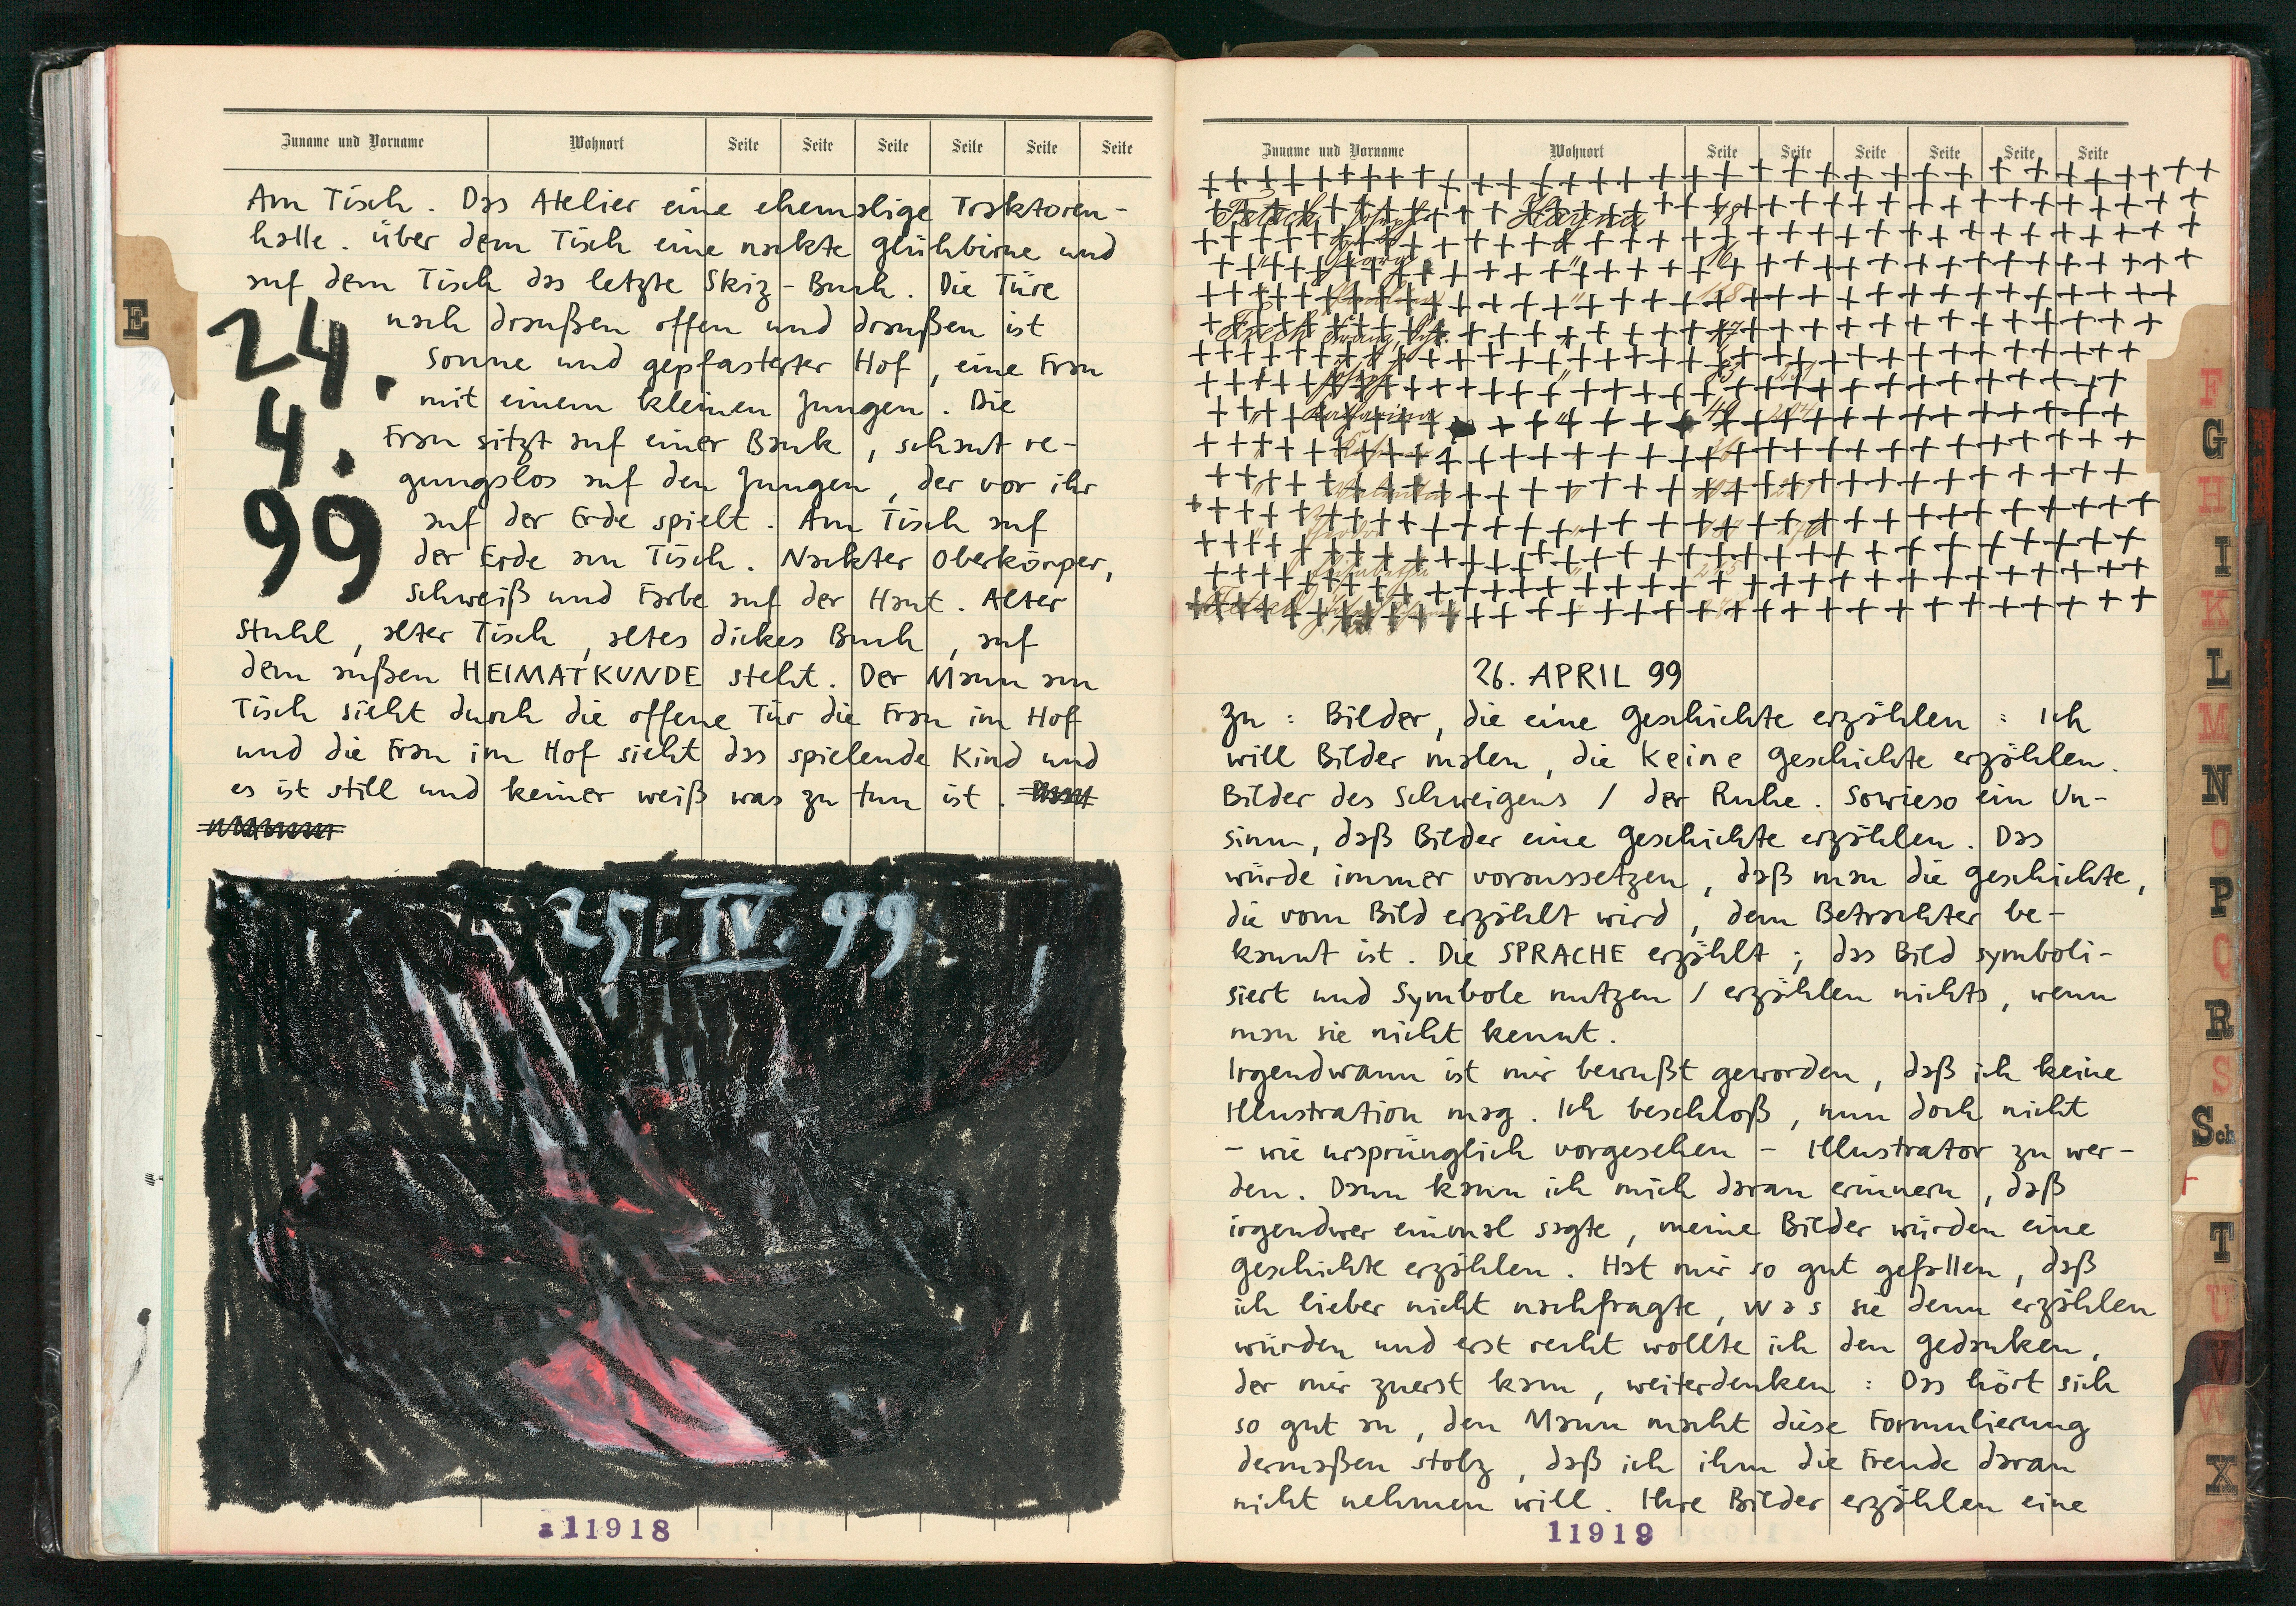 Zuname und Vorname Wohnort Seite Seite Seite Seite Seite Seite
Am Tisch. Das Atelier eine ehemalige Traktoren-
halle. Über dem Tisch eine nackte Glühbirne und
auf dem Tisch das letzte Skiz-Buch. Die Türe
nach draußen offen und draußen ist
Sonne und gepflasterter Hof, eine Frau
mit einem kleinen Jungen. Die
Frau sitzt auf einer Bank, schaut re-
gungslos auf den Jungen, der vor ihr
auf der Erde spielt. Am Tisch auf
der Erde am Tisch. Nackter Oberkörper,
Schweiß und Farbe auf der Haut. Alter
Stuhl, alter Tisch, altes dickes Buch, auf
dem außen HEIMATKUNDE steht. Der Mann am
Tisch sieht durch die offene Tür die Frau im Hof
und die Frau im Hof sieht das spielende Kind und
es ist still und keiner weiß was zu tun ist.
24.
4.
99
25. IV. 99.
11918
E
Zuname und Vorname Wohnort Seite Seite Seite Seite Seite Seite
Hayna
Georg
Josef
Katharina
26. APRIL 99
Zu: Bilder, die eine Geschichte erzählen: Ich
will Bilder malen, die keine Geschichte erzählen.
Bilder des Schweigens / der Ruhe. Sowieso ein Un-
sinn, daß Bilder eine Geschichte erzählen. Das
würde immer voraussetzen, daß man die Geschichte,
die vom Bild erzählt wird, dem Betrachter be-
kannt ist. Die SPRACHE erzählt; das Bild symboli-
siert und Symbole nutzen / erzählen nichts, wenn
man sie nicht kennt.
Irgendwann ist mir bewußt geworden, daß ich keine
Illustration mag. Ich beschloß, nun doch nicht
- wie ursprünglich vorgesehen - Illustrator zu wer-
den. Dann kann ich mich daran erinnern, daß
irgendwer einmal sagte, meine Bilder würden eine
Geschichte erzählen. Hat mir so gut gefallen, daß
ich lieber nicht nachfragte, was sie denn erzählen
würden und erst recht wollte ich den Gedanken,
der mir zuerst kam, weiterdenken: Das hört sich
so gut an, den Mann macht diese Formulierung
dermaßen stolz, daß ich ihm die Freude daran
nicht nehmen will. Ihre Bilder erzählen eine
11919
F
G
H
I
K
L
M
N
O
P
Q
R
S
Sch
T
U
V
W
X